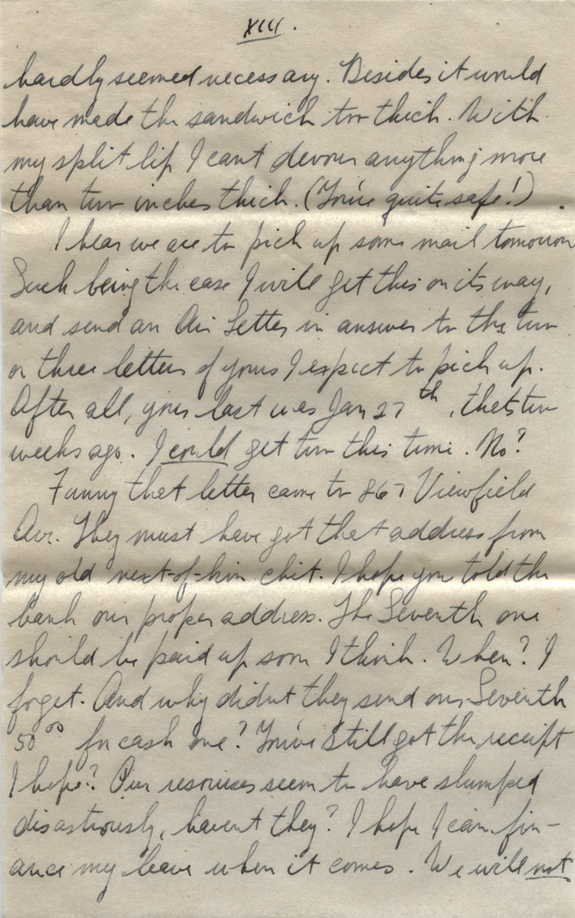 XIII.
hardly seemed necessary. Besides it would
have made the sandwich too thick. With
my split lip I can't devour anything more
than two inches thick. (You're quite safe!).
I hear we are to pick up some mail tomorrow
Such being the case I will get this on its way,
and send an Air Letter in answer to the two
or three letters of yours I expect to pick up.
After all, your last was Jan 27th, that's two
weeks ago. I could get two this time. No?
Funny that letter came to 867 Viewfield
Ave. They must have got that address from
my old next-of-kin chit. I hope you told the
bank our proper address. The Seventh one
should be paid up soon I think. When? I
forget. And why didn't they send our Seventh
50⁰⁰ for cash one? You've still got the receipt
I hope? Our resources seem to have slumped
disastrously, haven't they? I hope I can fin-
ance my leave when it comes. We will not